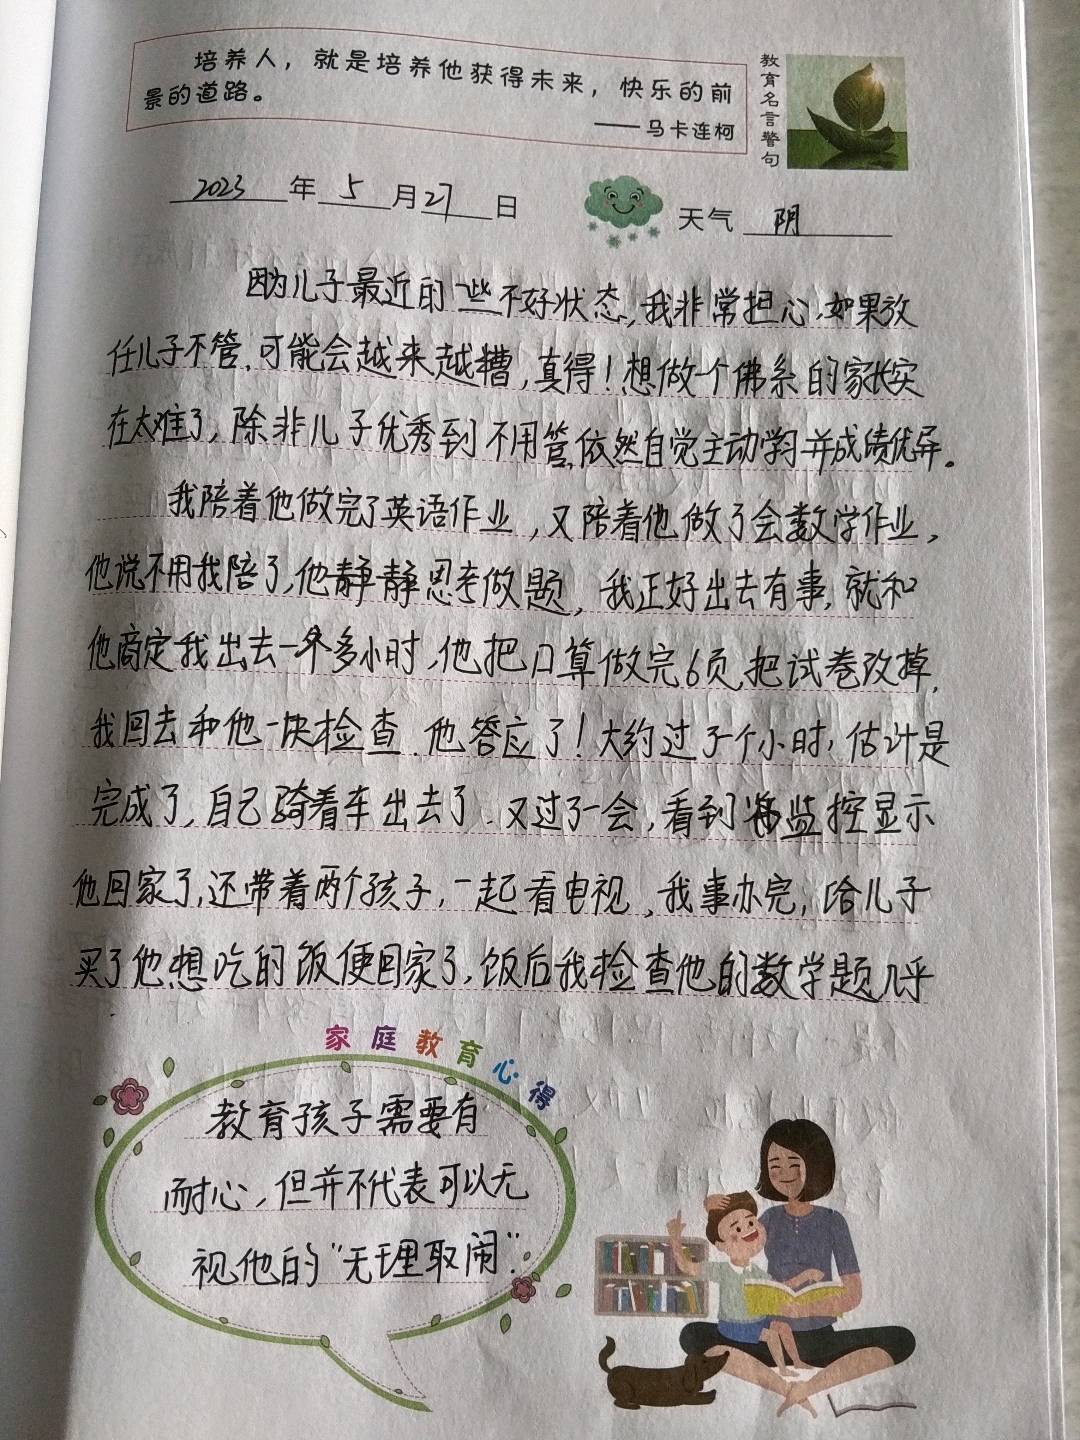 培养人，就是培养他获得未来，快乐的前
景的道路。
——马卡连柯
教育名言警句
2023年5月27日
天气 阴
因为儿子最近的一些不好状态，我非常担心，如果放
任儿子不管，可能会越来越糟，真得！想做一个佛系的家长实
在太难了，除非儿子优秀到不用管，依然自觉主动学习并成绩优异。
我陪着他做完了英语作业，又陪着他做了会数学作业，
他说不用我陪了，他静静思考做题，我正好出去有事，就和
他商定我出去一个多小时，他把口算做完6页，把试卷改掉，
我回去和他一块检查，他答应了！大约过了个小时，估计是
完成了，自己骑着车出去了，又过了一会，看到监控显示
他回家了，还带着两个孩子，一起看电视，我事办完，给儿子
买了他想吃的饭便回家了，饭后我检查他的数学题，几乎
家庭教育心得
教育孩子需要有
耐心，但并不代表可以无
视他的“无理取闹”.